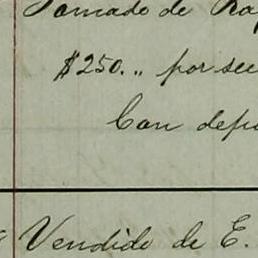 Tomado de Ra
$250.,, por see
Con depo
Vendido de E.